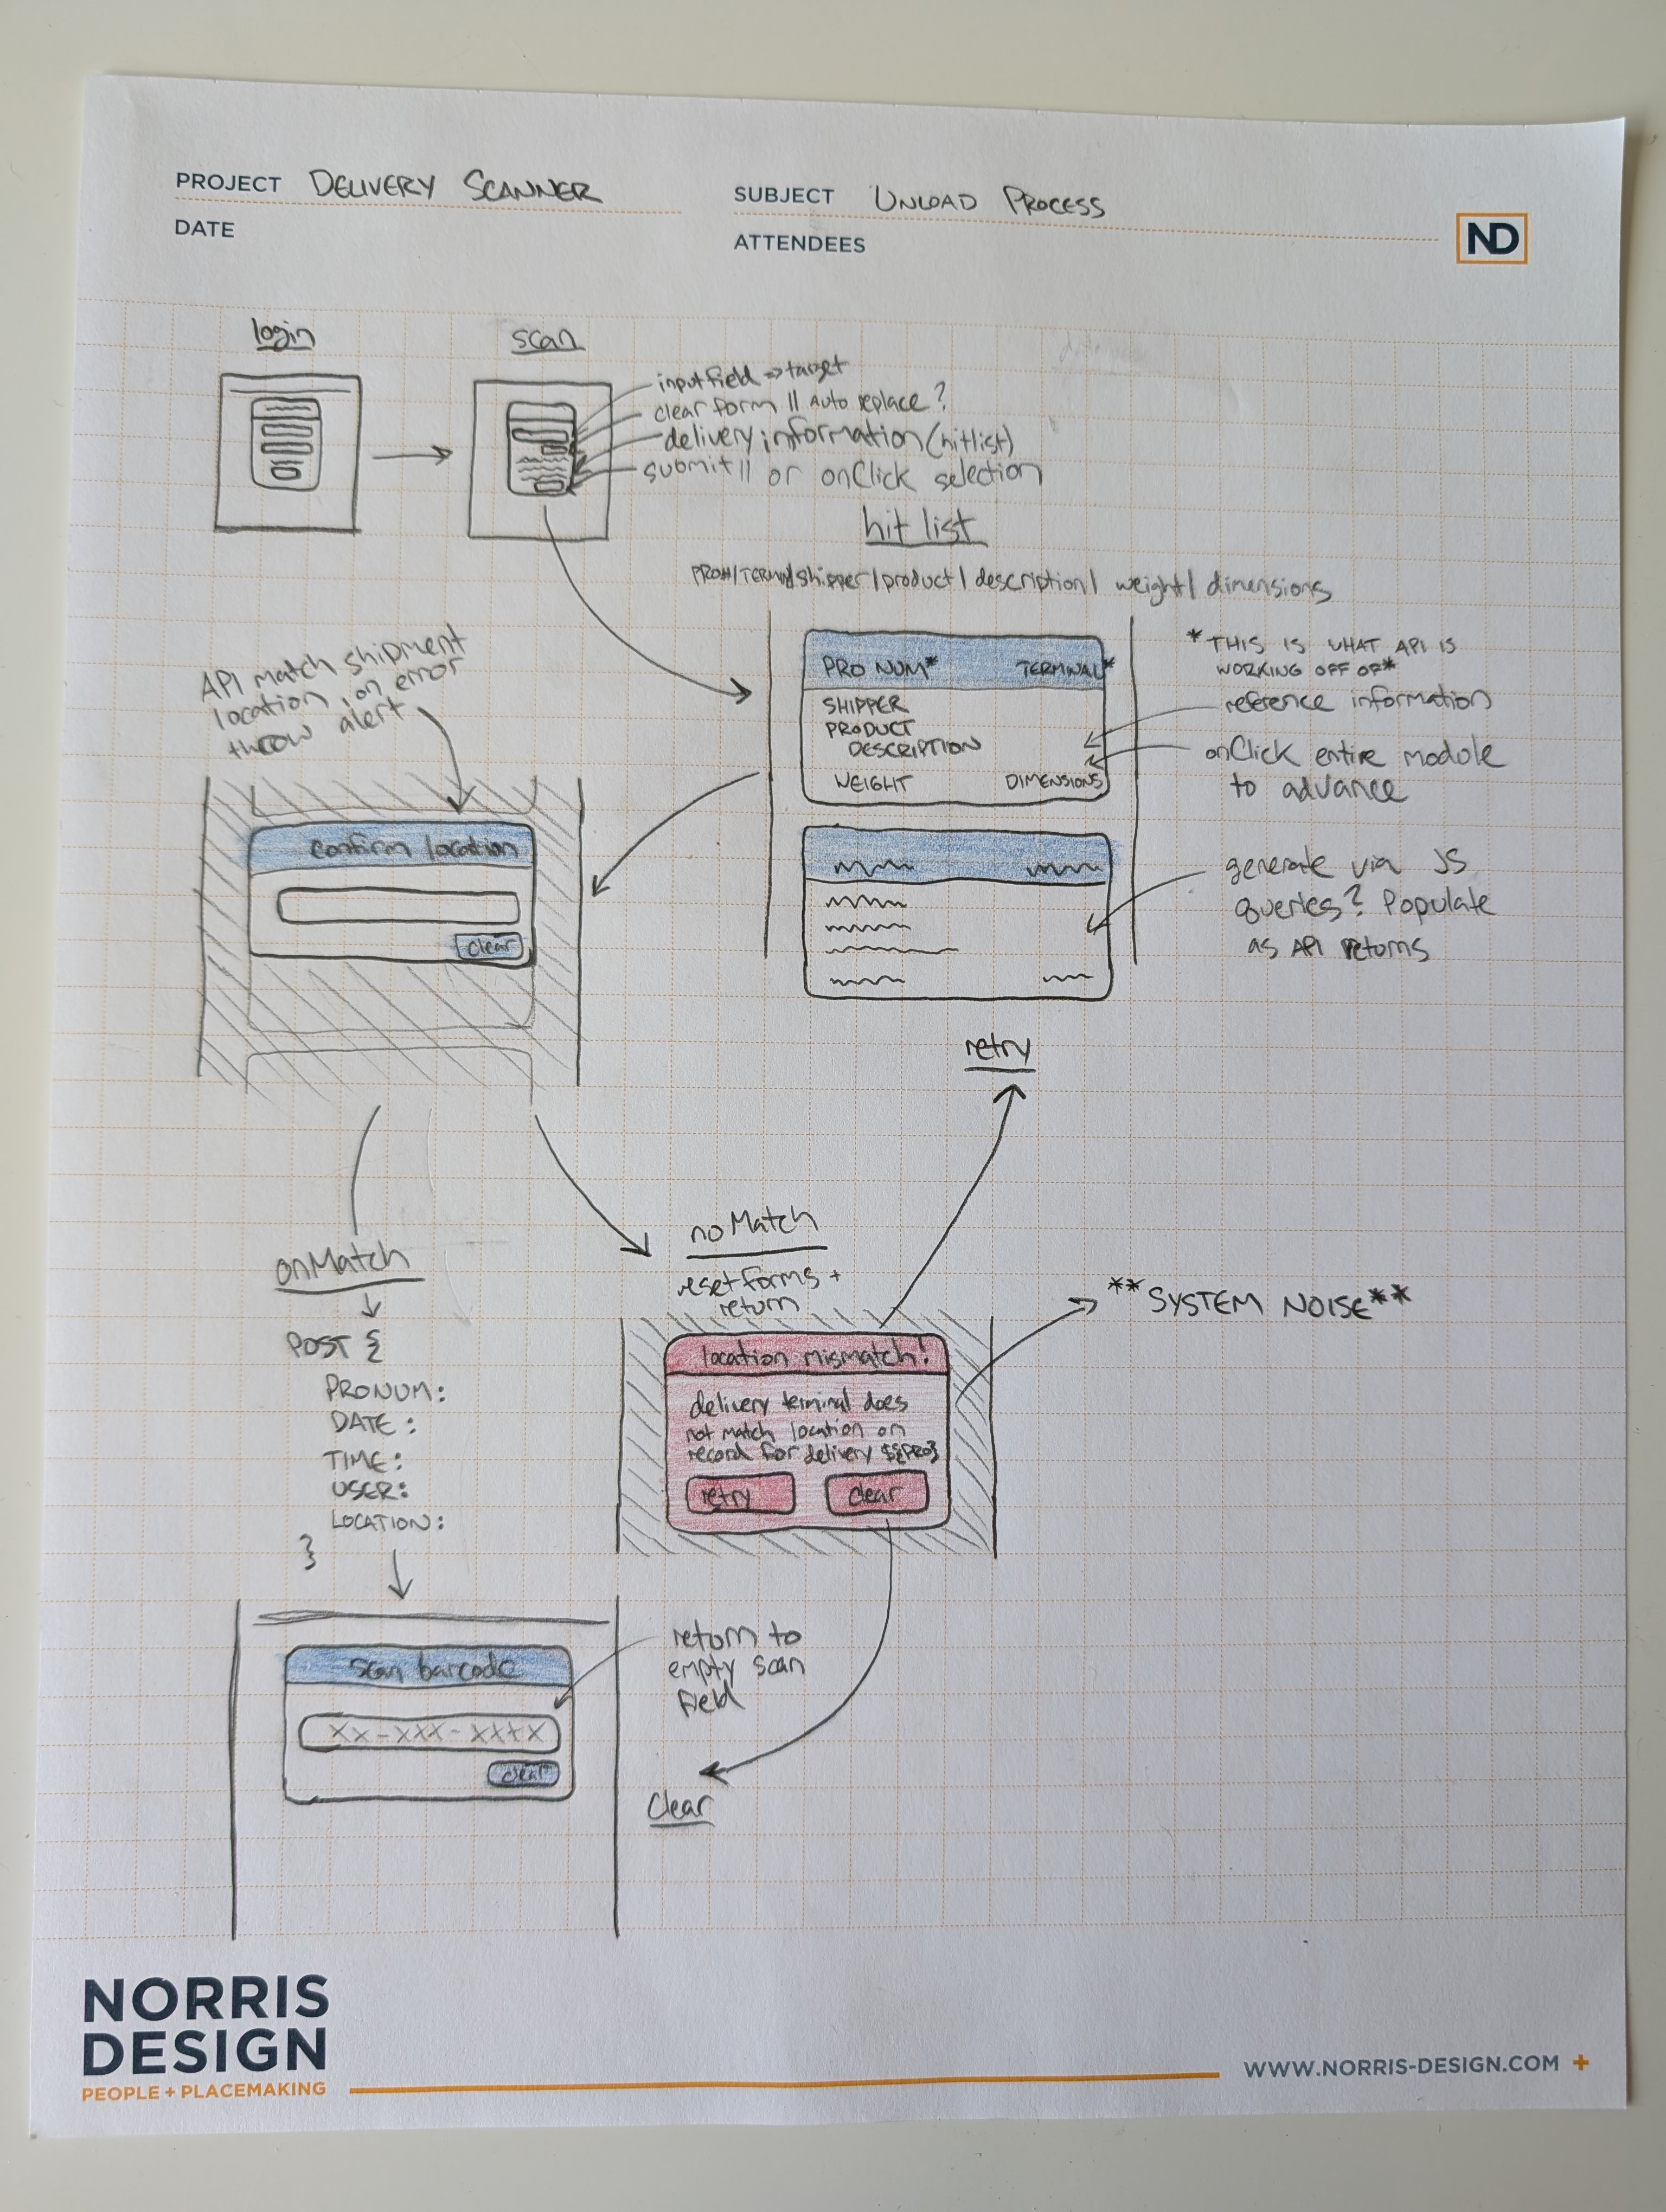 PROJECT DELIVERY SCANNER
SUBJECT UNLOAD PROCESS
DATE
ATTENDEES
ND
login
scan
input field => target
clear form || Auto replace?
delivery information (hitlist)
submit || or onClick selection
hit list
PRO#/TERM/shipper/product/description/ weight/ dimensions
PRO NUM* TERMINAL*
SHIPPER
PRODUCT
DESCRIPTION
WEIGHT DIMENSIONS
*THIS IS WHAT API IS
WORKING OFF OF*
reference information
onClick entire module
to advance
generate via JS
queries? Populate
as API returns
API match shipment
location, on error
throw alert
confirm location
clear
retry
onMatch
POST {
PRONUM:
DATE:
TIME:
USER:
LOCATION:
}
noMatch
reset forms +
return
location mismatch!
delivery terminal does
not match location on
record for delivery ${PRO}
retry clear
**SYSTEM NOISE**
scan barcode
XX-XXX-XXXX
clear
return to
empty scan
field
Clear
NORRIS
DESIGN
PEOPLE + PLACEMAKING
WWW.NORRIS-DESIGN.COM +